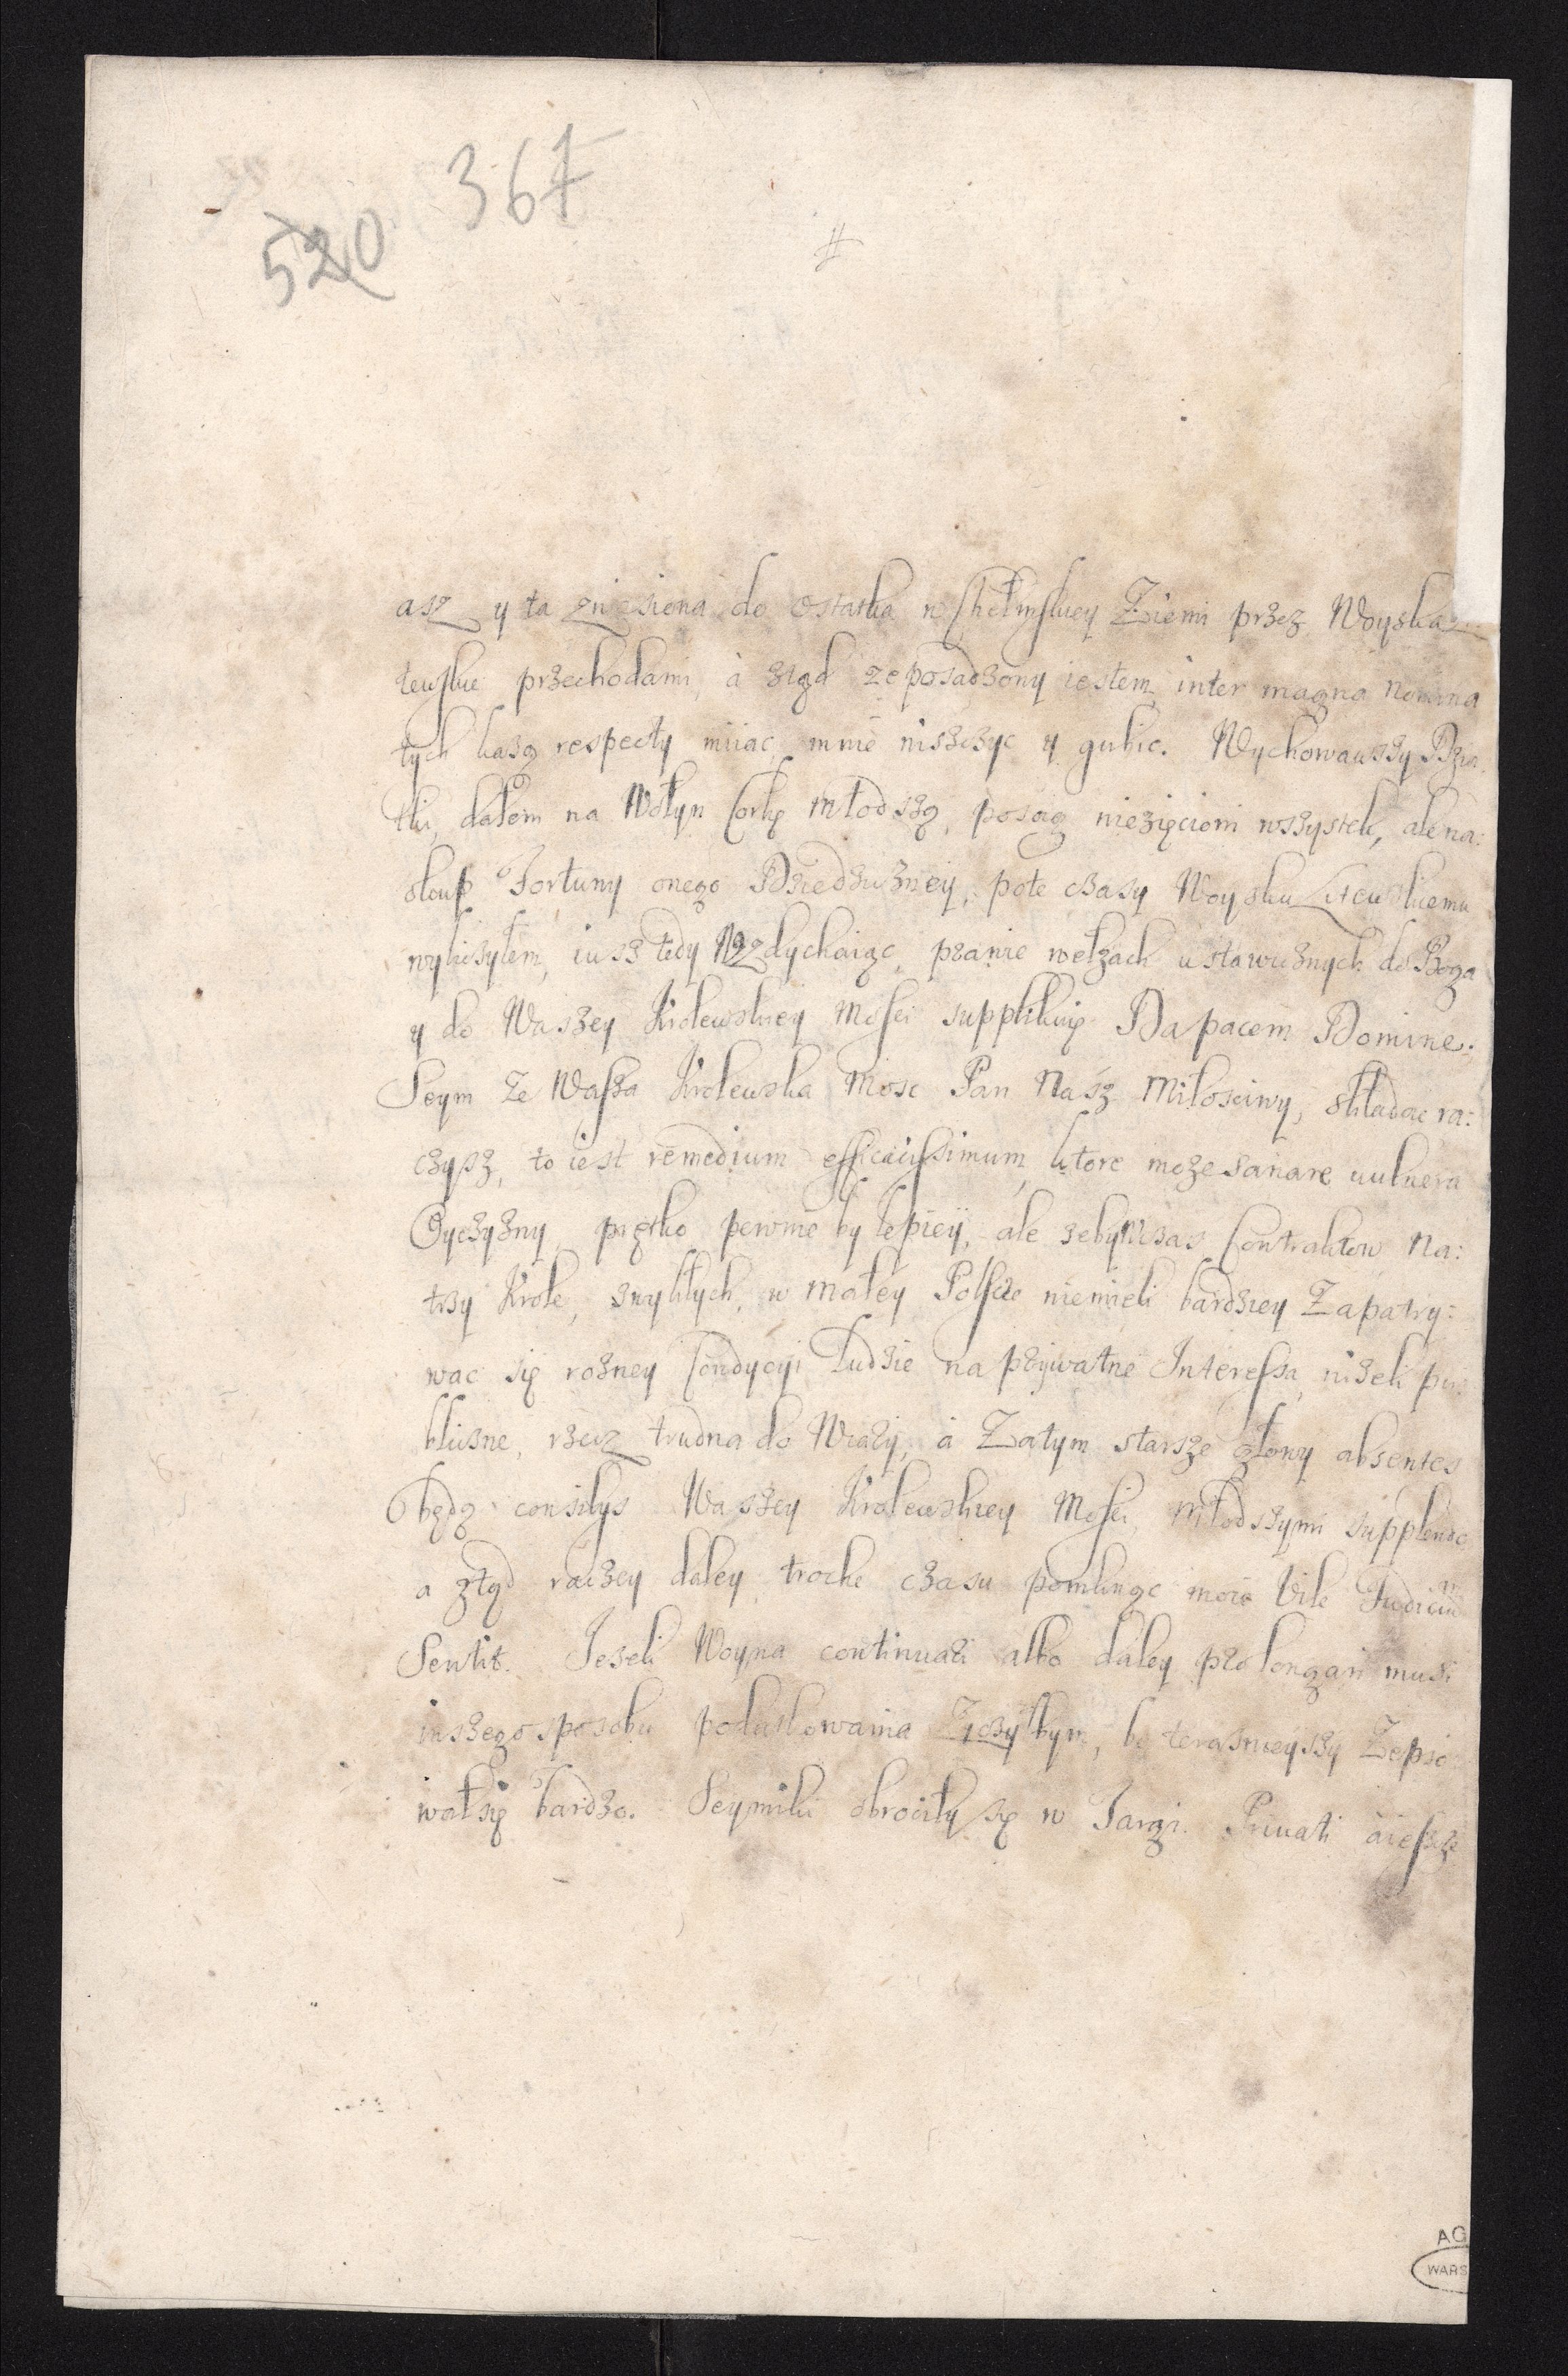 367
520
asz y ta zniesiona do ostatka w Chełmskiey Ziemi przez Woyska
tewskie przechodami, à ztąd zeposadzony iestem inter magna nomina
tych każą respecty miiac mnie niszczyc y gubic. Wychowawszy Dzia
tki, dałem na Wołyn Corkę młodszą, posag niezięciom wszystek, ale na:
Fortuny onego Dziedziczney, pote czasy Woysku Litewskiemu
wyliczyłem, iusz tedy Wzdychaiąc, prawie wełzach ustawicznych do Boga
y do Waszey Krolewskiey Mosci supplikuię Da pacem Domine.
Seym ze Wasza Krolewska Mosc Pan Nasz Miłosciwy, składac ra:
czysz, to iest remedium efficacissimum, ktore może sanare vulnera
Oyczyzny prętko pewnie by lepiey, ale zeby wczas Contraktow Na:
trzy Krole, zwykłych, w małey Polscze niemieli bardziey Zapatry:
wac się rozney Condycyi Ludzie na prywatne Interessa, nizeli pu:
bliczne, rzecz trudna do Wiary, à Zatym starsze głowy absentes
będą consilijs Waszey Krolewskiey Mosci, Młodszymi supplendo
a ztąd raczey daley troche czasu pomknąc moie Vile Iudicium
Sentit. Jezeli Woyna continuari albo daley prolongari musi
inszego sposobu podatkowania Zyczyłbym, bo teraznieyszy Zepso
wał się bardzo. Seymiki obrociły się w Targi. Privati
AG
WARS